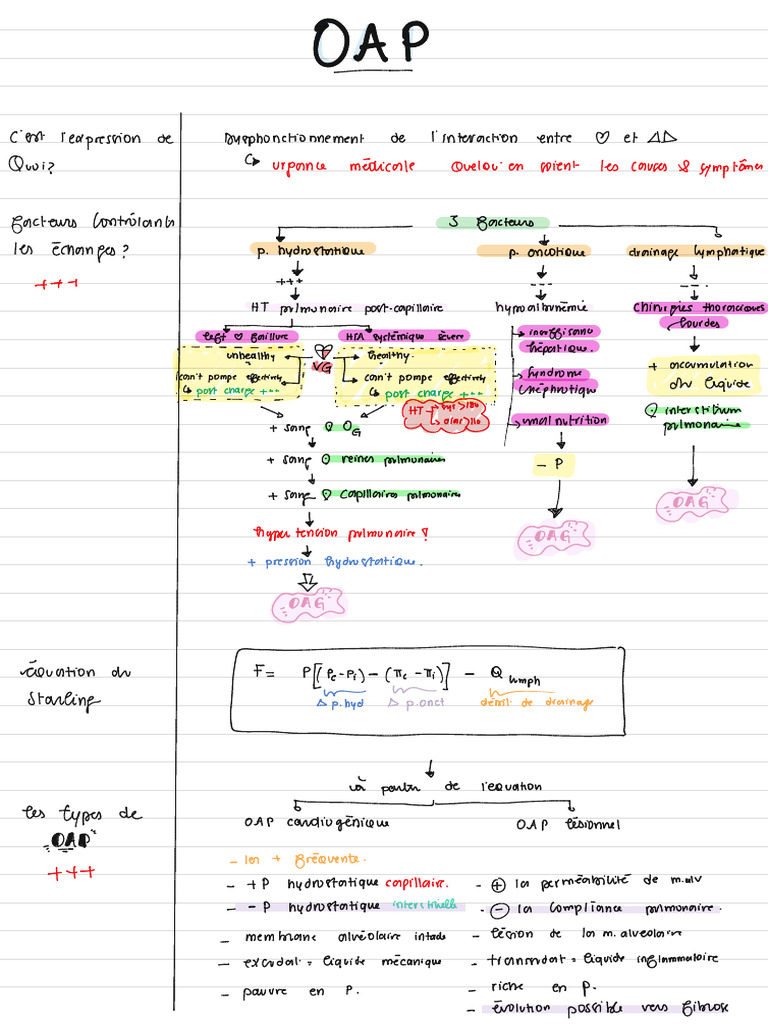 OAP
C'est l'expression de Quoi?
Dysphonctionnement de l'interaction entre ♡ et △△
↳ urgance médicale Quelqu'en soient les causes & symptômes
facteurs contrôlants les échanges?
+++
3 facteurs
p. hydrostatique
p. oncotique
drainage lymphatique
+++
---
---
HT pulmonaire post-capillaire
hypoalbunémie
chirurgies thoraciques lourdes
left ♡ faillure
HTA systémique sévère
unhealthy
VG
healthy
can't pompe effectively
↳ post charge +++
can't pompe effectively
↳ post charge +++
HT
sys > 180
dias > 110
inseffisance hépatique.
Syndrome néphrotique
malnutrition
+ accumulation du liquide
interstitium pulmonaire
+ sang OG
+ sang veines pulmonaires
- P
+ sang capillaires pulmonaires
OAG
OAG
hypertension pulmonaire !
+ pression hydrostatique.
OAG
équation du Starling
F = P[(Pc-Pi) - (πc - πi)] - Q lymph
△ p.hyd
△ p.onct
débit de drainage
à partir de l'equation
les types de "OAP"
+++
OAP cardiogénique
OAP lésionnel
- la + fréquente.
- +P hydrostatique capillaire.
- -P hydrostatique interstitielle
- membrane alvéolaire intacte
- exsudat = liquide mécanique
- pauvre en P.
- ⊕ la perméabilité de m.alv
- ⊖ la compliance pulmonaire.
- lésion de la m.alveolaire
- transsudat = liquide inflammatoire
- riche en P.
- évolution possible vers fibrose